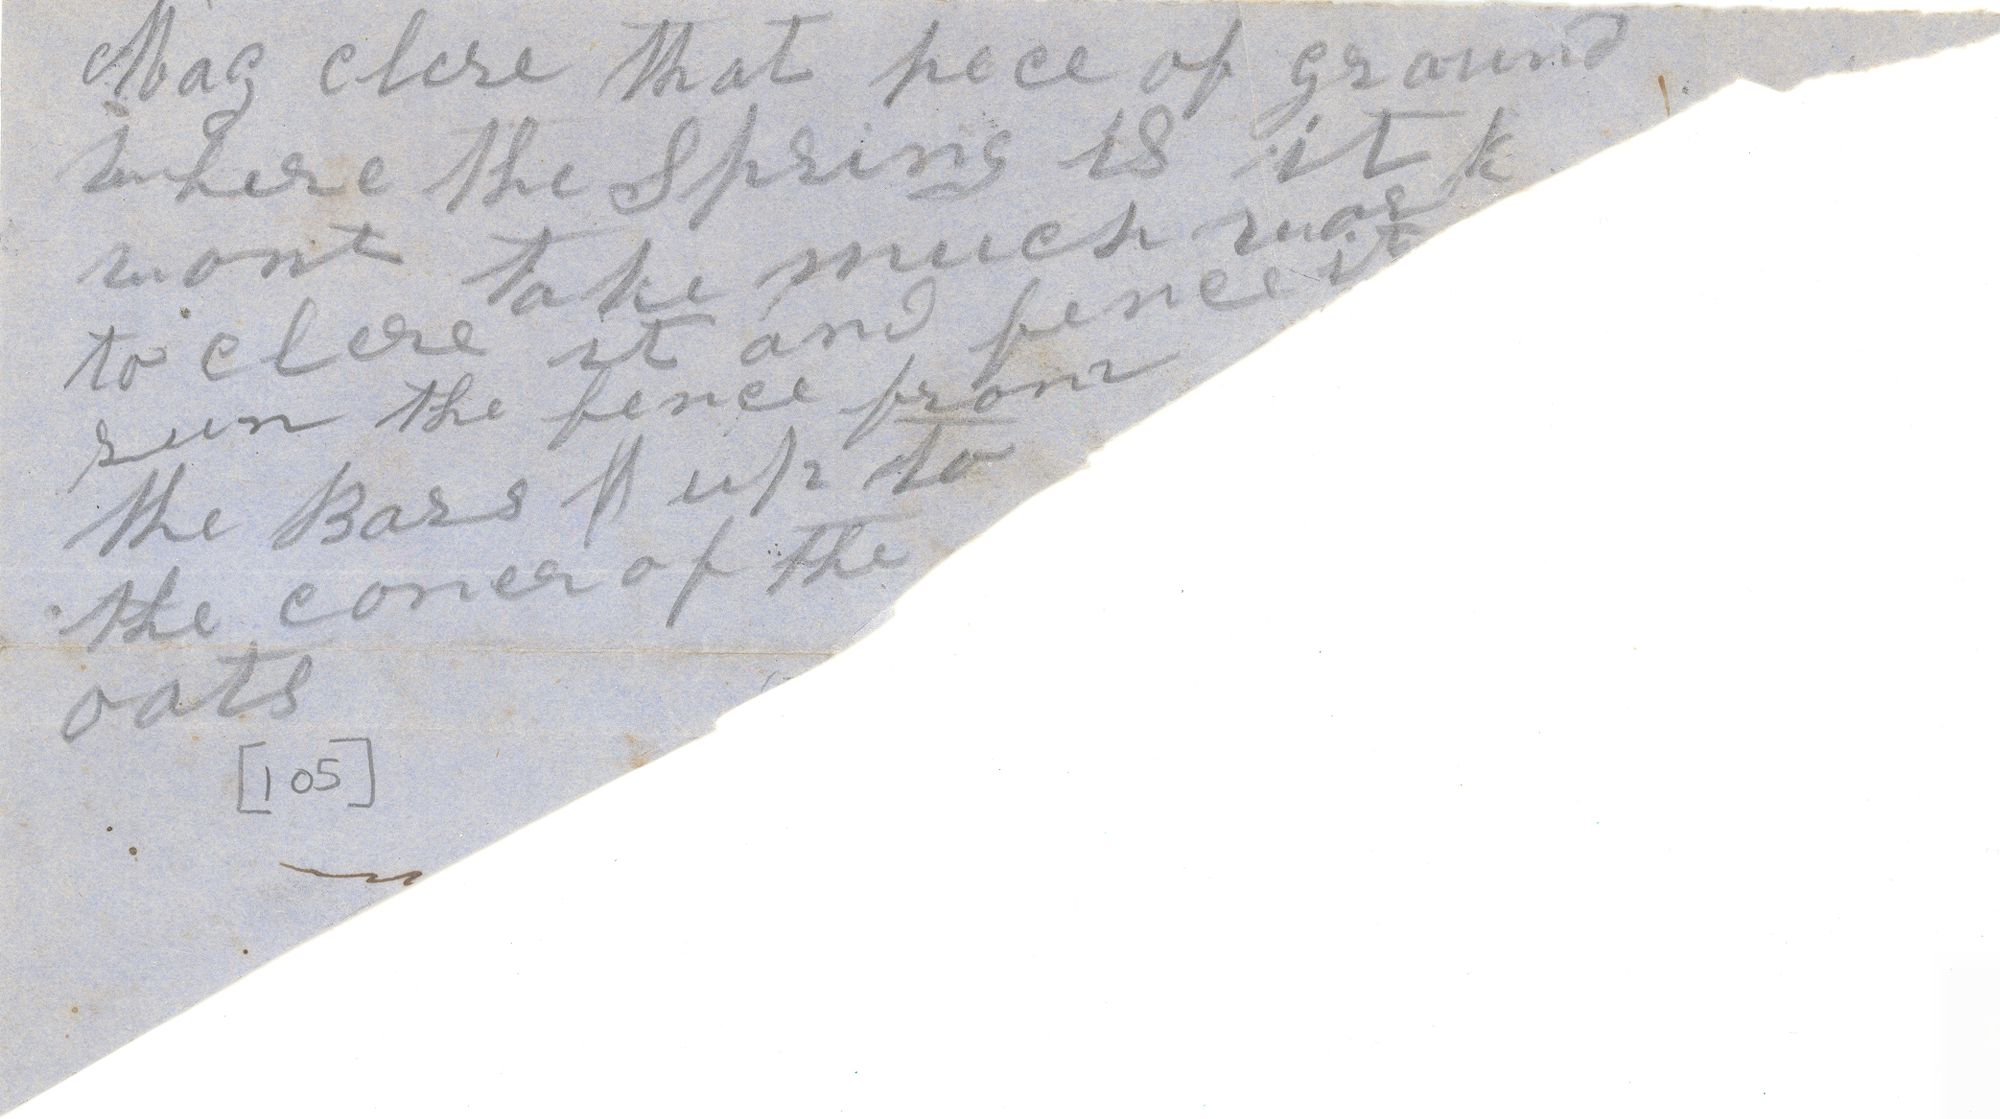 Mag clere that pece of ground
where the Spring is it
wont take much work
to clere it and fence it
run the fence from
the Bars up to
the coner of the
oats
[105]